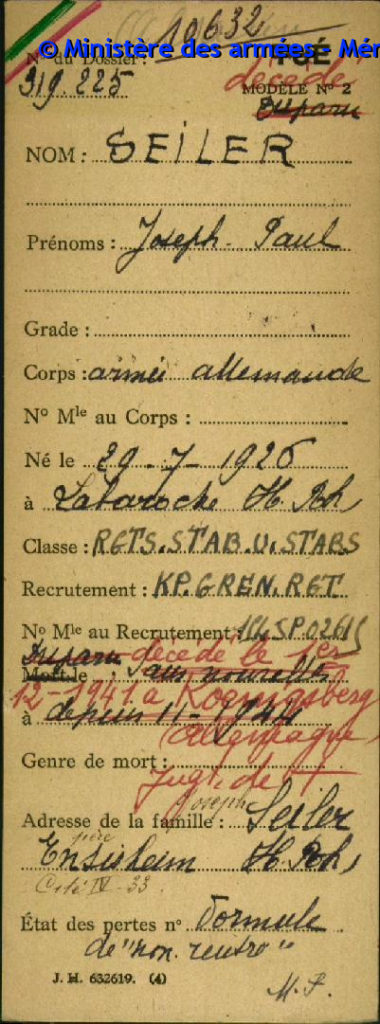 10632
© Ministère des armées - Mém
N° du Dossier :
319.225
TUÉ
décédé
MODÈLE N° 2
Disparu
NOM : SEILER
Prénoms : Joseph - Paul
Grade :
Corps : armée allemande
N° Mle au Corps :
Né le 29 - 7 - 1926
à Labaroche H. Rh,
Classe : RGTS.STAB.U.STABS
Recrutement : KP.GREN.RGT
N° Mle au Recrutement :
Disparu décédé le 1er
Mort le sans nouvelles
12-1941 à Koenigsberg
à depuis 11-1944
(Allemagne)
Genre de mort :
Jugt. de
Joseph
Adresse de la famille : Seiler
père
Ensisheim H. Rh,
Cité IV - 33
État des pertes n° Formule
de "non rentré"
J. H. 632619. (4)
M.F.